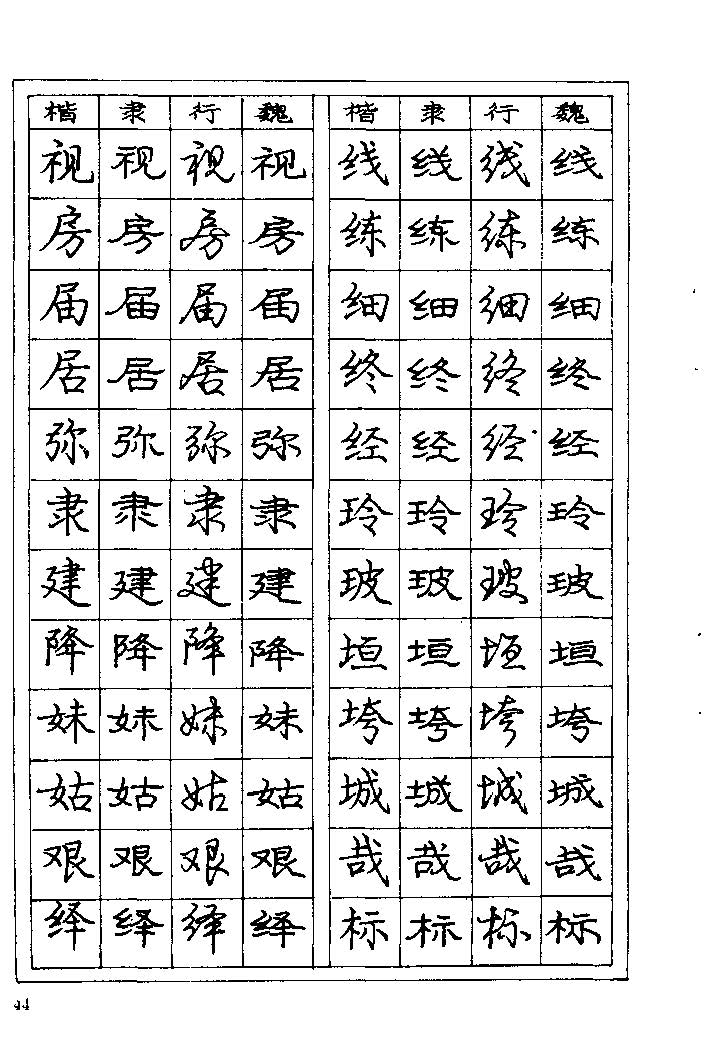 楷 隶 行 魏 楷 隶 行 魏
视 视 视 视 线 线 线 线
房 房 房 房 练 练 练 练
届 届 届 届 细 细 细 细
居 居 居 居 终 终 终 终
弥 弥 弥 弥 经 经 经 经
隶 隶 隶 隶 玲 玲 玲 玲
建 建 建 建 玻 玻 玻 玻
降 降 降 降 垣 垣 垣 垣
妹 妹 妹 妹 垮 垮 垮 垮
姑 姑 姑 姑 城 城 城 城
艰 艰 艰 艰 哉 哉 哉 哉
绎 绎 绎 绎 标 标 标 标
44